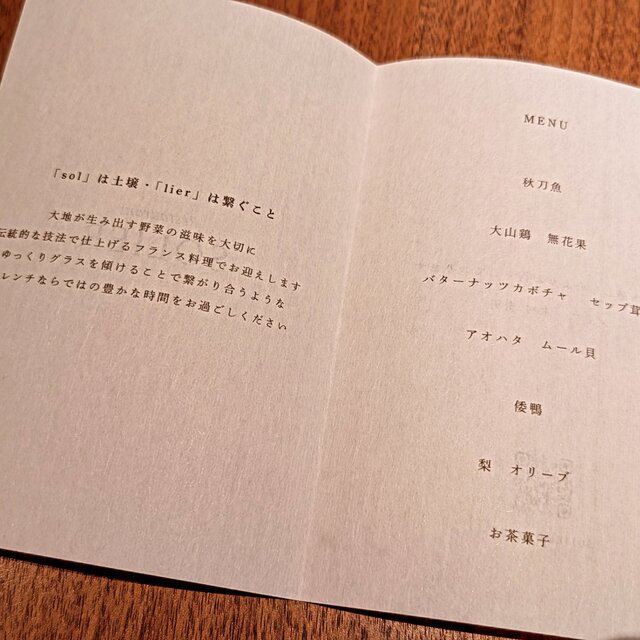 「sol」は土壌・「lier」は繋ぐこと
大地が生み出す野菜の滋味を大切に
伝統的な技法で仕上げるフランス料理でお迎えします
ゆっくりグラスを傾けることで繋がり合うような
レンチならではの豊かな時間をお過ごしください
MENU
秋刀魚
大山鶏 無花果
バターナッツカボチャ セップ茸
アオハタ ムール貝
倭鴨
梨 オリーブ
お茶菓子